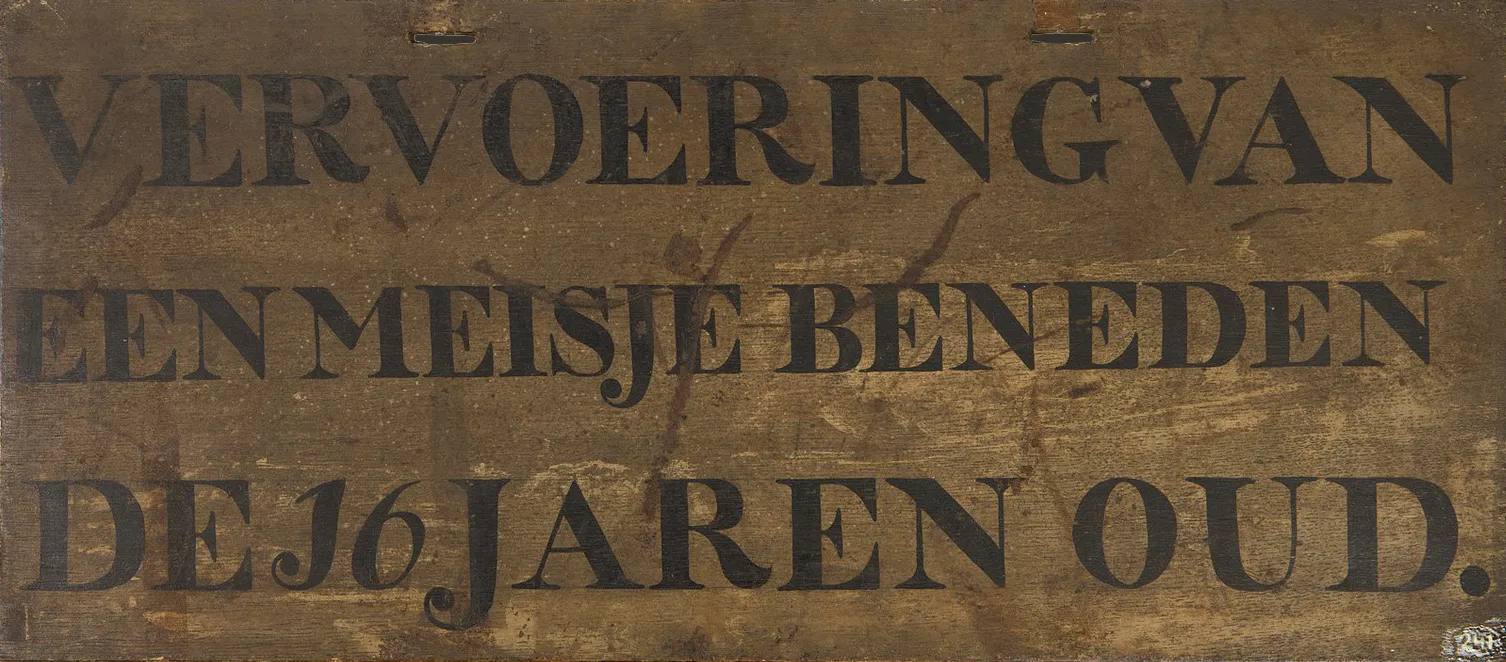 VERVOERING VAN
EEN MEISJE BENEDEN
DE 16 JAREN OUD.
241